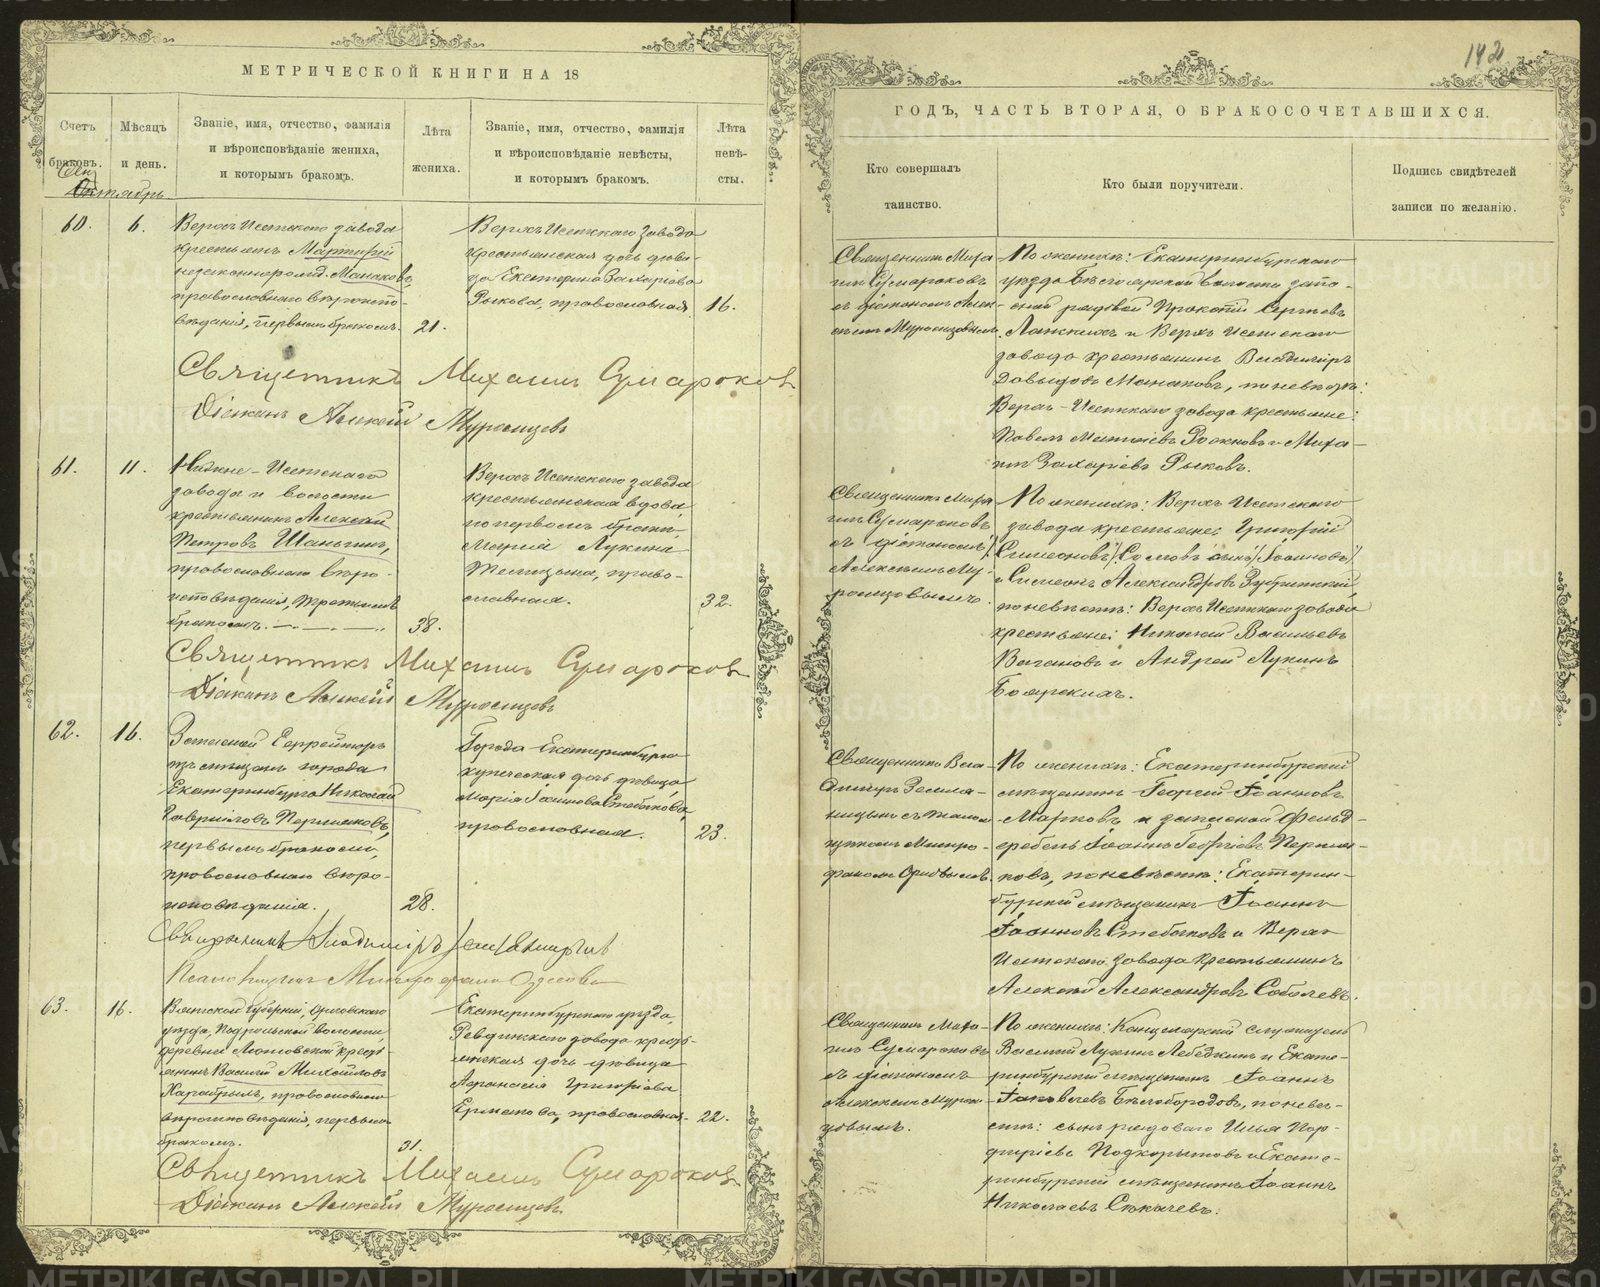 МЕТРИЧЕСКОЙ КНИГИ НА 18
Счетъ браковъ.
Мѣсяцъ и день.
Званіе, имя, отчество, фамилія и вѣроисповѣданіе жениха, и которымъ бракомъ.
Лѣта жениха.
Званіе, имя, отчество, фамилія и вѣроисповѣданіе невѣсты, и которымъ бракомъ.
Лѣта невѣсты.
Октябрь
60.
6.
Верхъ Исетскаго завода
крестьянинъ
Манаковъ,
православнаго вѣроиспо-
вѣданія, первымъ бракомъ.
21.
Верхъ Исетскаго завода
крестьянская дочь дѣви-
ца Екатерина Захаріева
Рыкова, православная
16.
Священникъ Михаилъ Сумароковъ
Діаконъ Алексій
61.
11.
Нижне-Исетскаго
завода и волости
крестьянинъ Алексій
Петровъ Шаньгинъ,
православнаго вѣро-
исповѣданія, третьимъ
бракомъ.
38.
Верхъ Исетскаго завода
крестьянская вдова,
по первомъ бракѣ,
Марія Лукина
православная.
32.
Священникъ Михаилъ Сумароковъ
Діаконъ Алексій
62.
16.
Запасной Ефрейторъ
изъ мѣщанъ города
Екатеринбурга Николай
Гавриловъ Пермяковъ,
первымъ бракомъ,
православнаго вѣро-
исповѣданія.
28.
Города Екатеринбурга
купеческая дочь дѣвица
Марія Іоаннова Стебакова,
православная.
23.
Священникъ Владиміръ Земляницынъ
Псаломщикъ Митрофанъ
63.
16.
Вятской губерніи, Орловскаго
уѣзда, волости,
деревни кресть-
янинъ Василій Михайловъ
православнаго
вѣроисповѣданія, первымъ
бракомъ.
31.
Екатеринбургскаго уѣзда,
Ревдинскаго завода кресть-
янская дочь дѣвица
Афанасія Григоріева
Ермакова, православная.
22.
Священникъ Михаилъ Сумароковъ
Діаконъ Алексій
142
ГОДЪ, ЧАСТЬ ВТОРАЯ, О БРАКОСОЧЕТАВШИХСЯ.
Кто совершалъ таинство.
Кто были поручители.
Подпись свидѣтелей записи по желанію.
Священникъ Миха-
илъ Сумароковъ
съ діакономъ Алек-
По женихѣ: Екатеринбургскаго
уѣзда волости запа-
сной рядовой Прокопій Сергѣевъ
и Верхъ Исетскаго
завода крестьянинъ Владиміръ
Давыдовъ Манаковъ, по невѣстѣ:
Верхъ-Исетскаго завода крестьяне:
Павелъ и Миха-
илъ Захаріевъ Рыковъ.
Священникъ Миха-
илъ Сумароковъ
съ діакономъ
Алексіемъ
По женихѣ: Верхъ Исетскаго
завода крестьяне: Григорій
Симеоновъ
и Симеонъ Александровъ
по невѣстѣ: Верхъ Исетскаго завода
крестьяне: Николай Васильевъ
Вагановъ и Андрей Лукинъ
Боярскихъ.
Священникъ Вла-
диміръ Земля-
ницынъ съ псалом-
щикомъ Митро-
фаномъ
По женихѣ: Екатеринбургскій
мѣщанинъ Георгій Іоанновъ
Марковъ и запасной фельд-
Іоаннъ Георгіевъ Пермя-
ковъ, по невѣстѣ: Екатерин-
бургскій мѣщанинъ Іоаннъ
Іоанновъ Стебаковъ и Верхъ
Исетскаго завода крестьянинъ
Алексій Александровъ Соболевъ.
Священникъ Миха-
илъ Сумароковъ
съ діакономъ
Алексіемъ
По женихѣ: Канцелярскій служитель
Василій Лукинъ Лебедкинъ и Екате-
ринбургскій мѣщанинъ Іоаннъ
Бѣлобородовъ, по невѣс-
тѣ: сынъ рядоваго Илья Пор-
фиріевъ Подкорытовъ и Екате-
ринбургскій мѣщанинъ Іоаннъ
Николаевъ Сюкачевъ.
METRIKI.GASO-URAL.RU